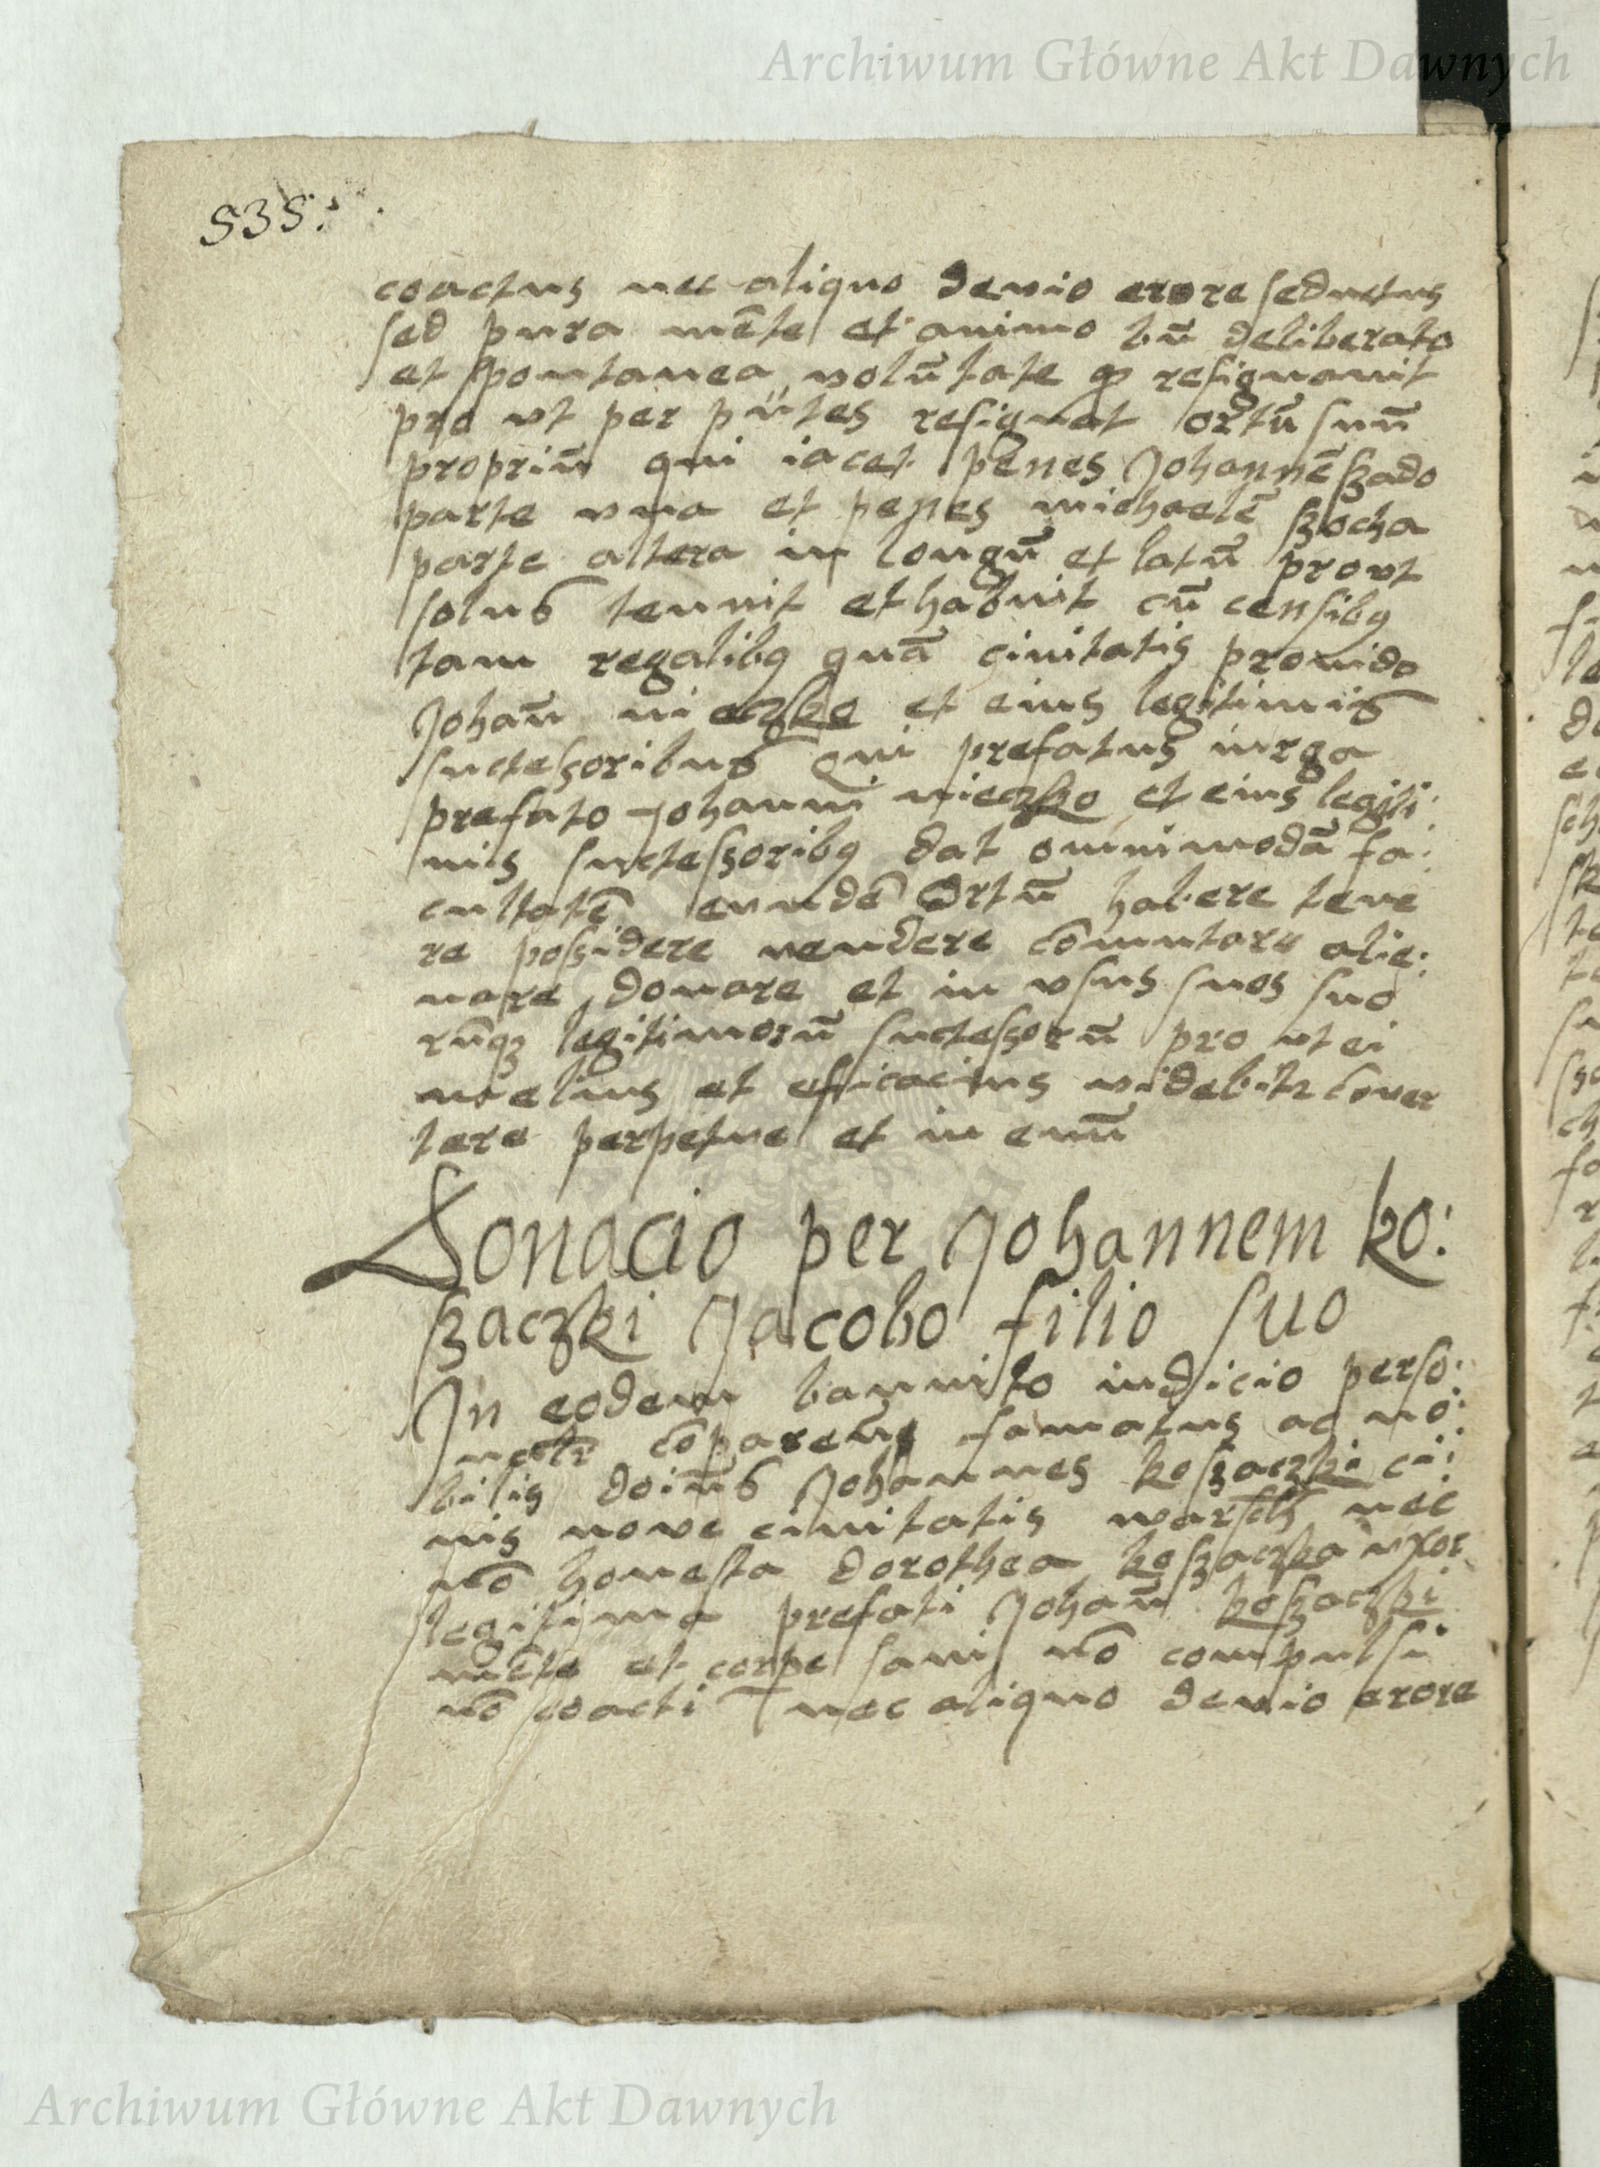 Archiwum Główne Akt Dawnych
535.
coactus nec aliquo devio erore seductus
sed pura mēte et animo bn̄ deliberato
et spontanea volūtate resignavit
pro ut per pn̄tes resignat ortū suū
propriū qui iacet penes Johannē szado
parte vna et penes michaelē szocha
parte altera in longū et latū provt
solus tenuit et habuit cū censibq
tam regalibq quā civitatis provido
Johan̄ et eius legitimis
suctessoribus Qui prefatus
prefato Johanni et eius legiti:
mis suctessoribq dat omnimodā fa:
cultatē eundē Ortū habere tene
re possidere vendere cōmutare alie:
nare donare et in vsus suos suo
rūqȝ legitimorū suctessorū pro vt ei
melius et eficacius videbitr cōver
tere perpetue et in evū
Donacio per Johannem ko:
szaczki Jacobo filio suo
In eodem bannito iudicio perso:
cōparens famatus ac no:
bilis doīus Johannes koszaczki ci:
vis nove civitatis warsch nec
nō honesta dorothea koszaczka vxor
legitima prefati Johan̄ koszaczki
mēte et corpe sani nō compulsi
nō coacti nec aliquo devio erore
Archiwum Główne Akt Dawnych